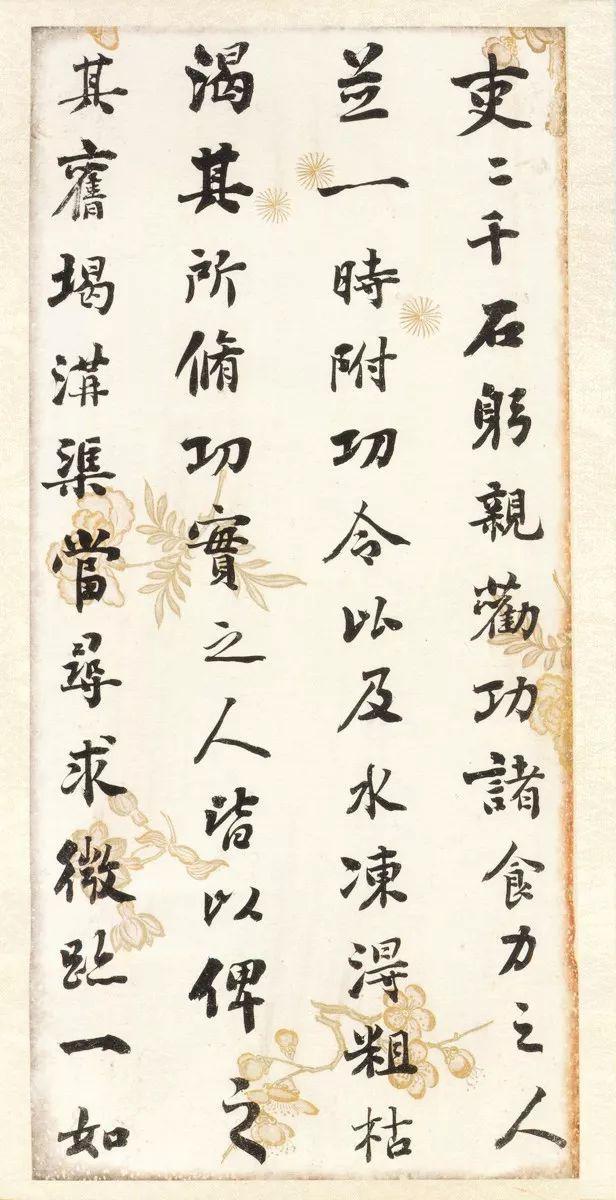 吏二千石躬親勸功諸食力之人
並一時附功令以及水凍得粗枯
渴其所脩功實之人皆以俾之
其舊堨溝渠當尋求微跡一如